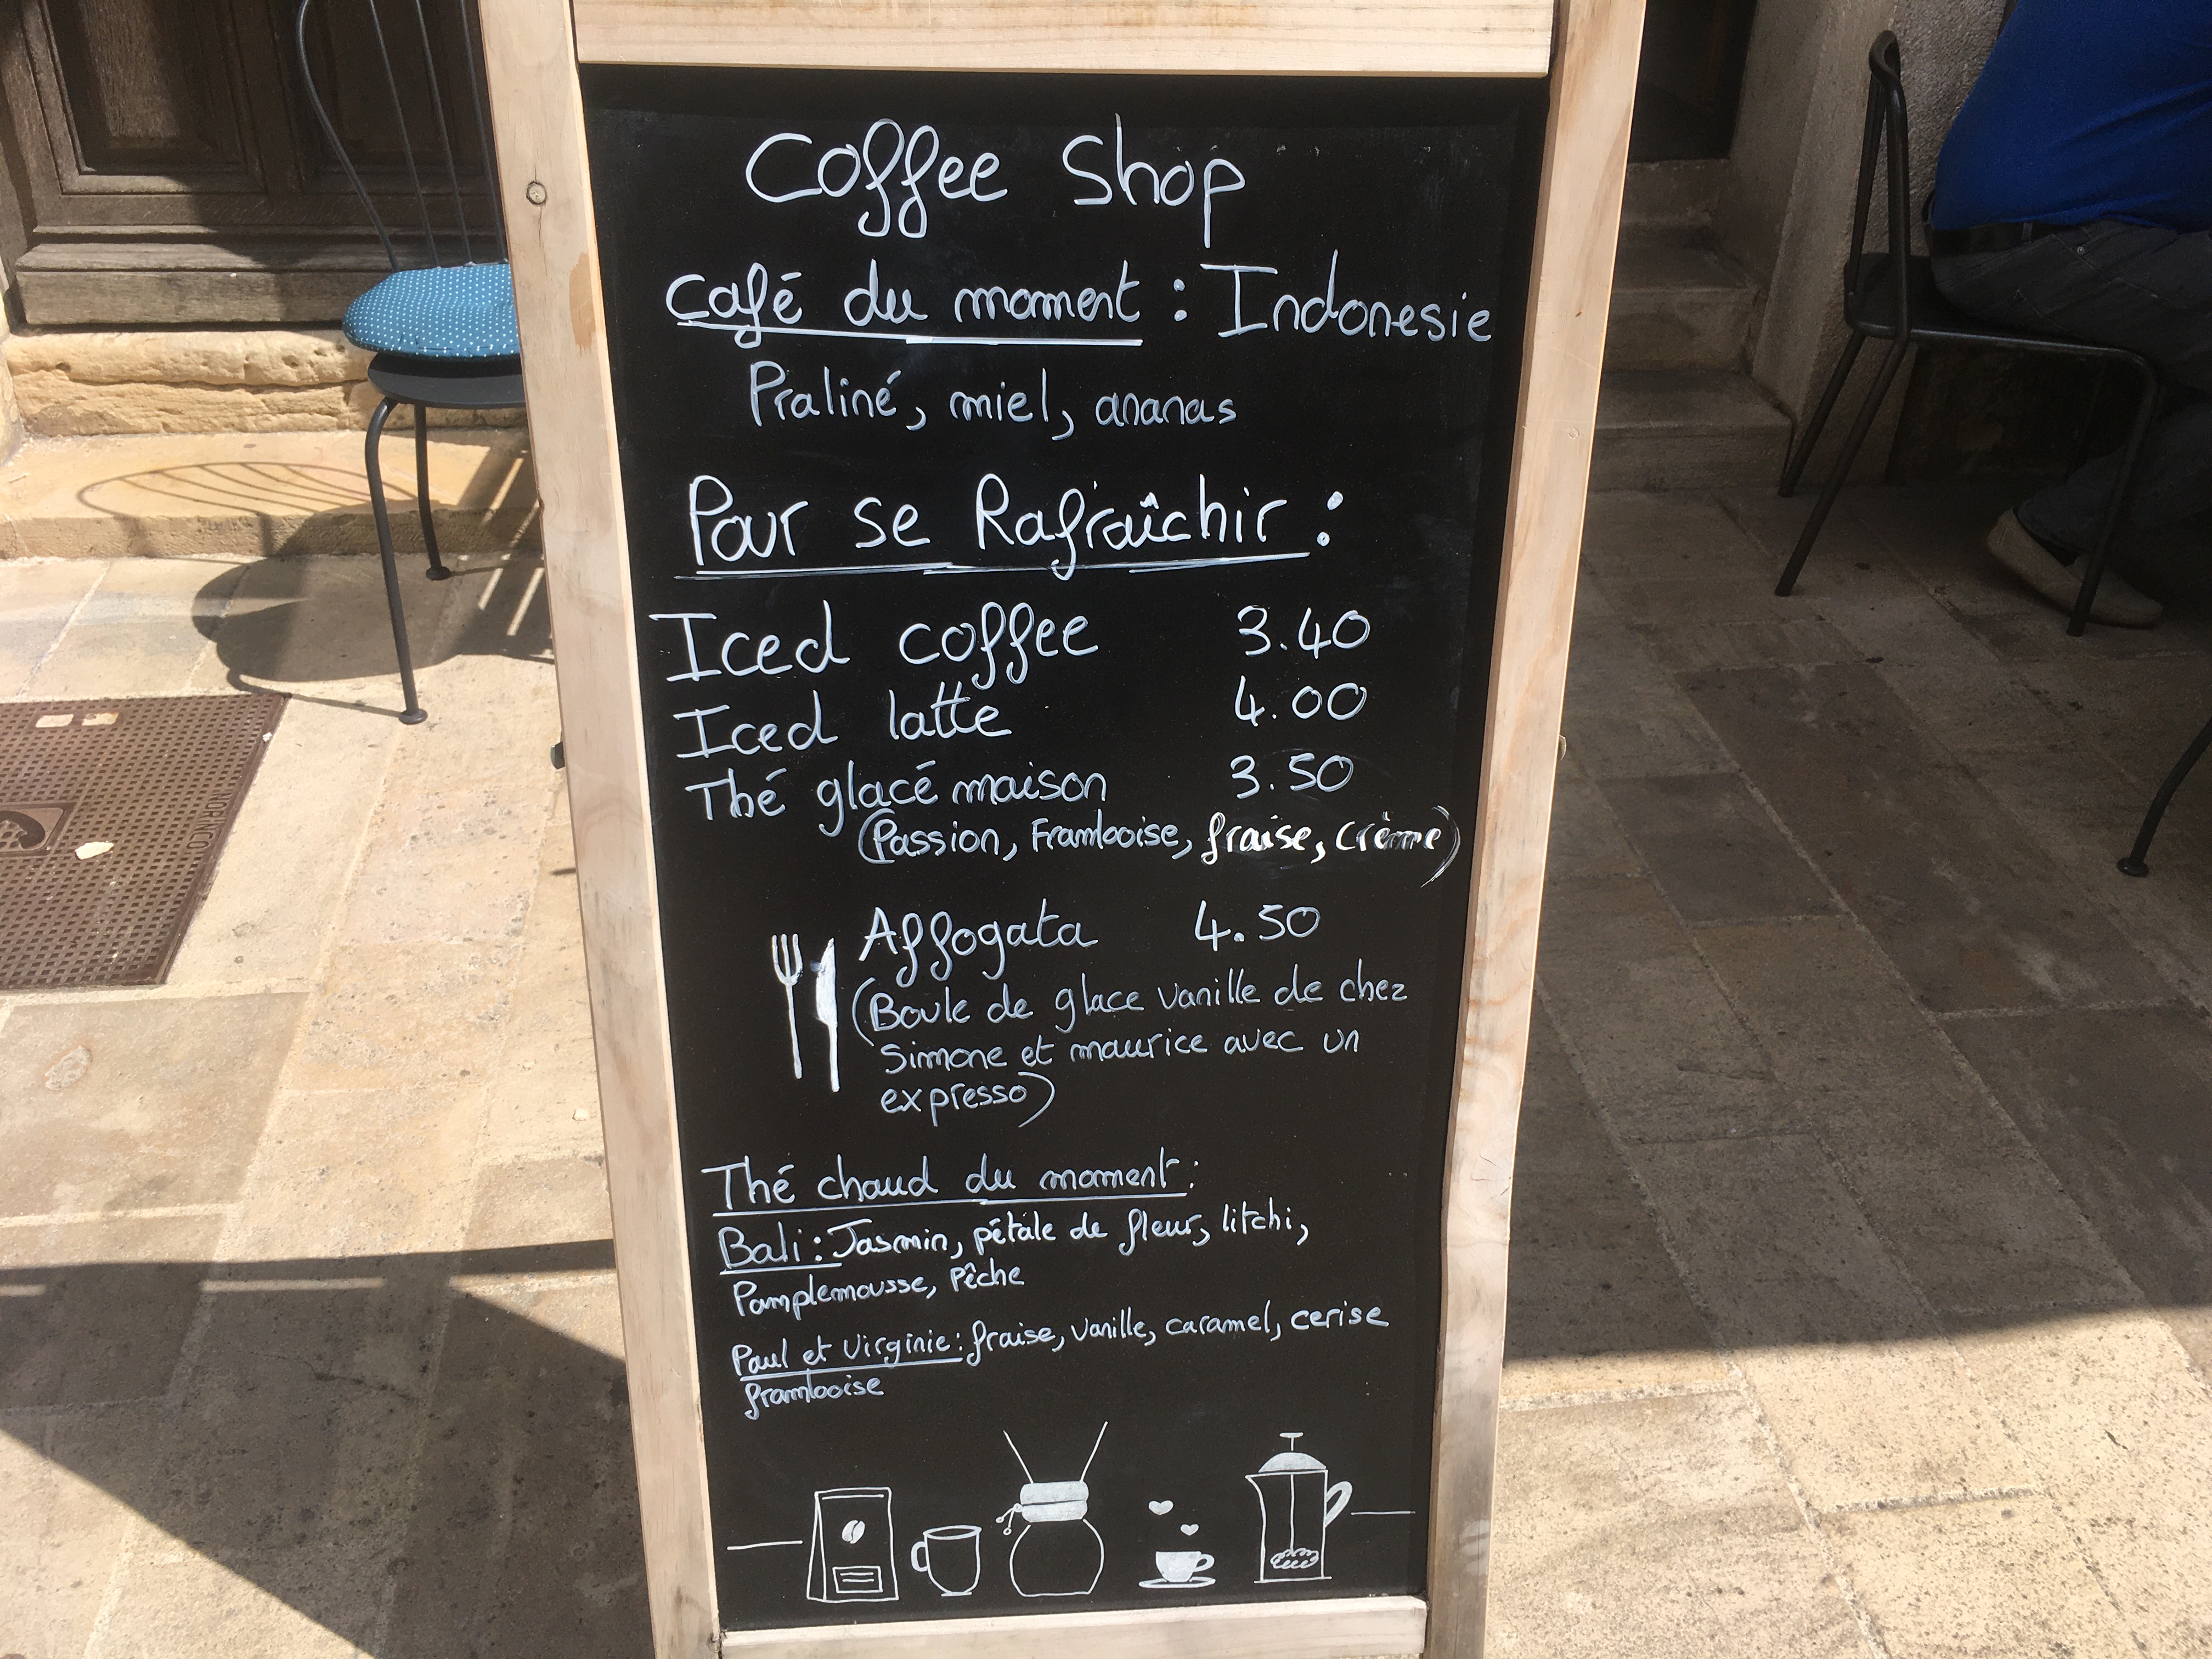 Coffee Shop
Café du moment : Indonesie
Praliné, miel, ananas
Pour se Rafraîchir :
Iced coffee 3.40
Iced latte 4.00
Thé glacé maison 3.50
(Passion, Framboise, fraise, crème)
Affogata 4.50
(Boule de glace vanille de chez
Simone et maurice avec un
expresso)
Thé chaud du moment :
Bali : Jasmin, pétale de fleur, litchi,
Pamplemousse, Pêche
Paul et Virginie : fraise, vanille, caramel, cerise
framboise
NORINCO